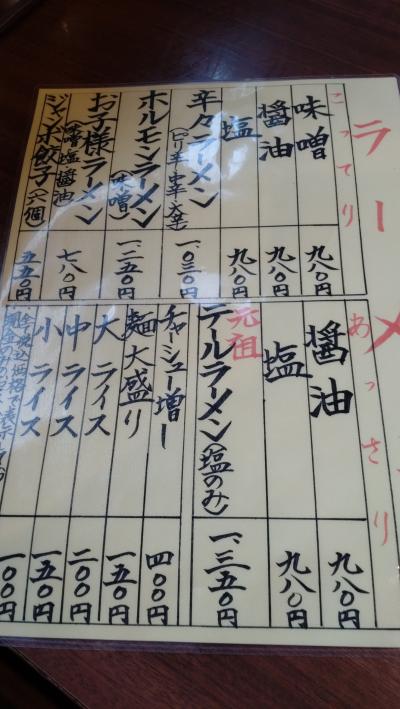 ラーメ
こってり
味噌 九八〇円
醤油 九八〇円
塩 九八〇円
辛々ラーメン(ピリ辛・中辛・大辛) 一、〇三〇円
ホルモンラーメン(味噌) 一、二五〇円
お子様ラーメン(味噌・塩・醤油) 七八〇円
ジャンボ餃子(六個) 五五〇円
あっさり
醤油 九八〇円
塩 九八〇円
元祖テールラーメン(塩のみ) 一、三五〇円
チャーシュー増し 四〇〇円
麺大盛り 一五〇円
大ライス 二〇〇円
中ライス 一五〇円
小ライス 一〇〇円